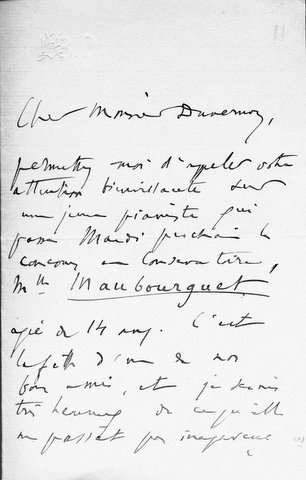 Cher Monsieur Duvernoy,
permettez moi d'appeler votre
attention bienveillante sur
une jeune pianiste qui
passe Mardi prochain le
concours au Conservatoire,
Mlle Maubourguet
agée de 14 ans. C'est
la fille d'un de nos
bons amis, et je serais
très heureux de ce qu'elle
ne passât pas inaperçue